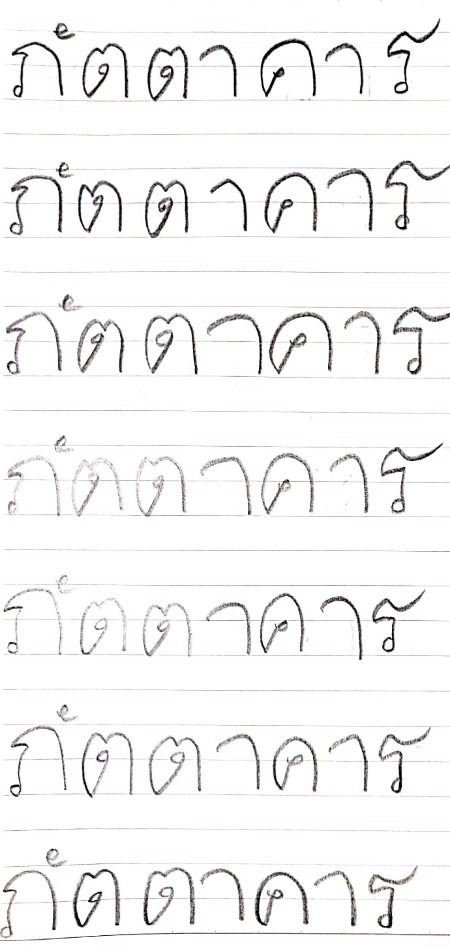 ภัตตาคาร
ภัตตาคาร
ภัตตาคาร
ภัตตาคาร
ภัตตาคาร
ภัตตาคาร
ภัตตาคาร